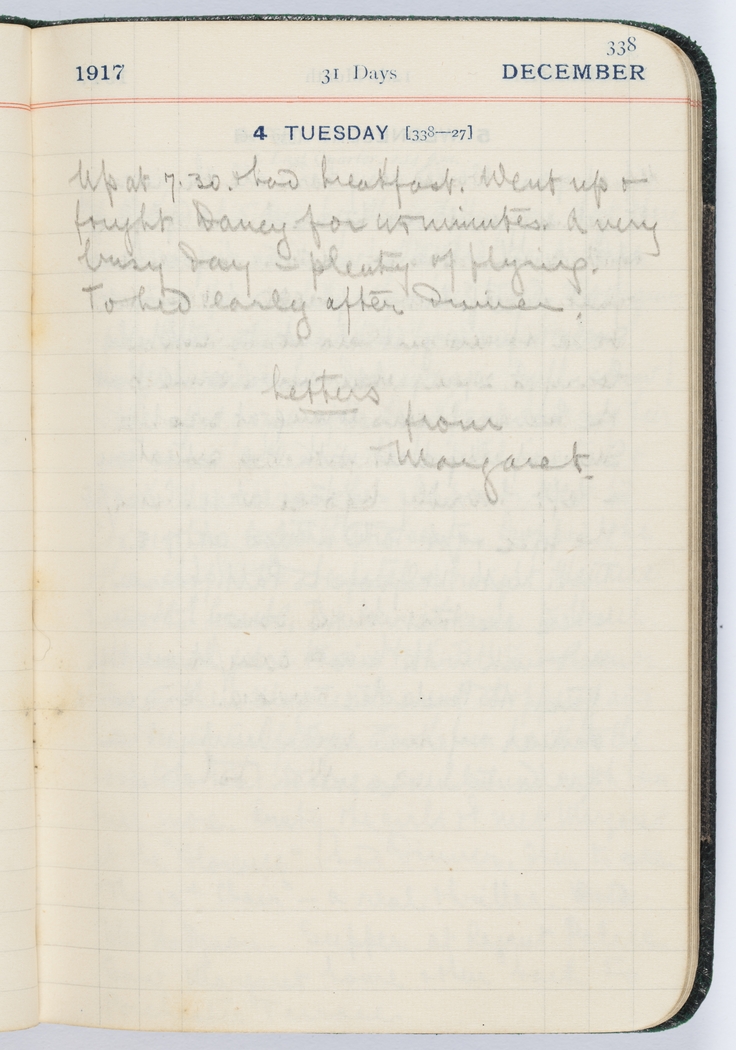 338
1917 31 Days DECEMBER
4 TUESDAY [338—27]
Up at 7.30. & had breakfast. Went up &
fought Dancy for 45 minutes. A very
busy day & plenty of flying.
To bed early after Dinner.
Letters
from
Margaret.